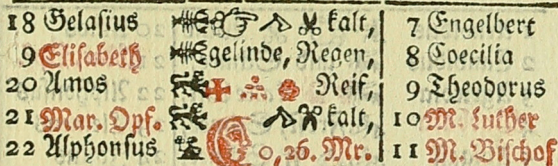 18 Gelasius kalt, 7 Engelbert
9 Elisabeth gelinde, Regen, 8 Coecilia
20 Amos Reif, 9 Theodorus
21 Mar. Opf. kalt, 10 M. Luther
22 Alphonsus 0, 26. Mr. 11 M. Bischof